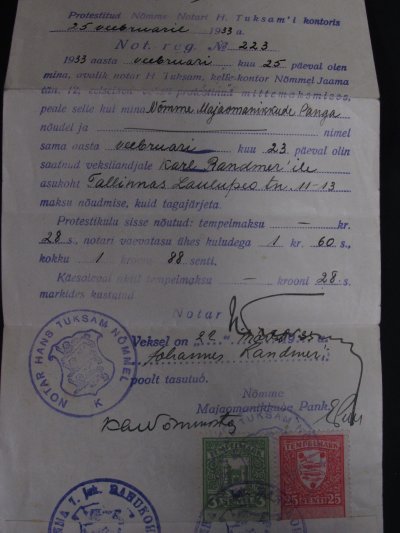 Protestitud Nõmme Notari H. Tuksam'i kontoris
25 veebruaril 1933 a.
Not. reg. № 223
1933 aasta veebruari kuu 25 päeval olen
mina, avalik notar H. Tuksam, kelle kontor Nõmmel Jaama
tän. 12, eelseisvat veksli protestinud mittemaksmises,
peale selle kui mina Nõmme Majaomanikkude Panga
nõudel ja nimel
sama aasta veebruari kuu 23 päeval olin
saatnud veksliandjale Karl Randmer'ile
asukoht Tallinnas Laulupeo tn. 11-13
maksu nõudmise, kuid tagajärjeta.
Protestikulu sisse nõutud: tempelmaksu — kr.
28 s., notari vaevatasu ühes kuludega 1 kr. 60 s.,
kokku 1 krooni 88 senti.
Käesoleval aktil tempelmaksu — krooni 28 s.
markides kustatud
Notar
Veksel on
Johannes Randmer'i
poolt tasutud.
Nõmme
Majaomanikkude Pank
NOTAR HANS TUKSAM NÕMMEL
K
TEMPELMARK
25 SENTI 25